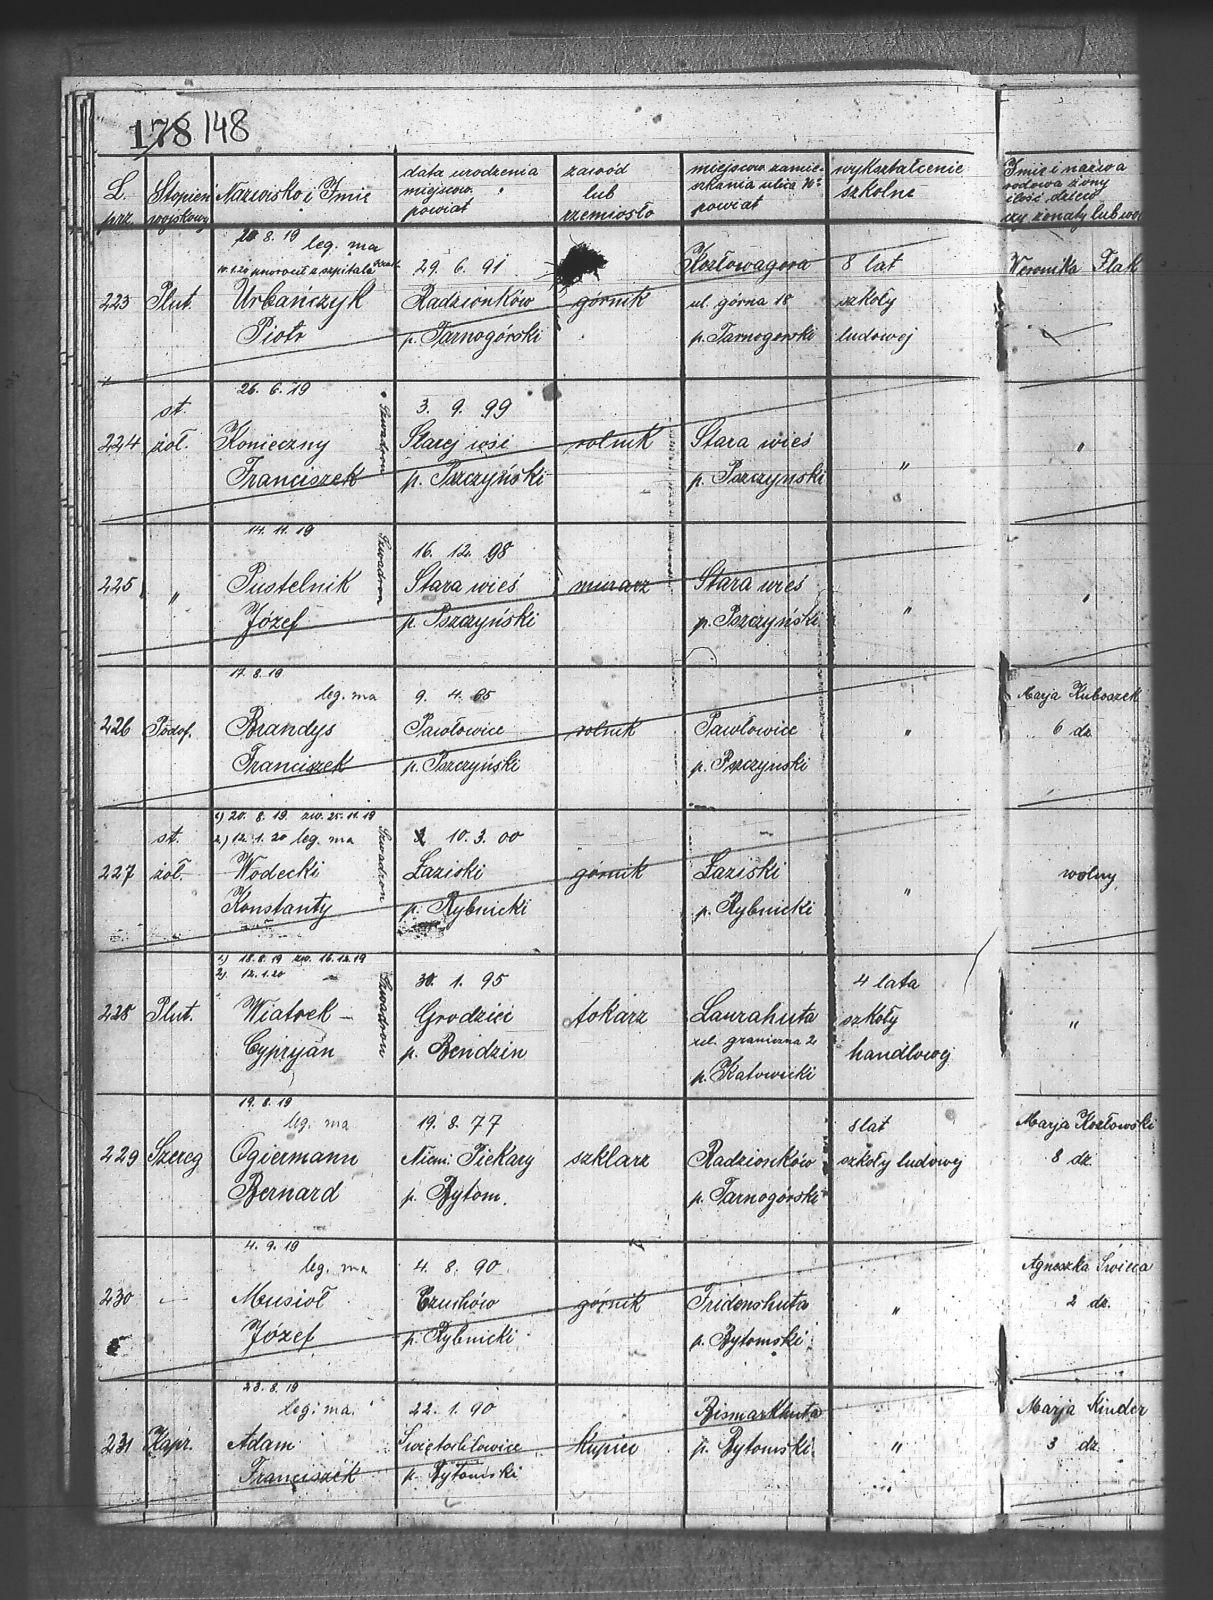 178 148
L. prz.
Stopień wojskowy
Nazwisko i Imie
data urodzenia miejscow. powiat
zawód lub rzemiosło
miejscow. zamieszkania ulica No powiat
wykształcenie szkolne
Imie i nazwa rodowa żony ilość dzieci czy żonaty lub wol
8. 19 leg. ma
powrócił z szpitala
29. 6. 91
Kozłowagora
8 lat
Weronika Flak
223
Plut.
Urbańczyk
Radzionków
górnik
ul. górna 18
szkoły
Piotr
p. Tarnogórski
p. Tarnogorski
ludowej
26. 6. 19
st.
3. 9. 99
Szwadron
224
żoł.
Konieczny
Starej wśi
rolnik
Stara wieś
"
Franciszek
p. Pszczyński
p. Pszczynski
"
14. 11. 19
Szwadron
16. 12. 98
225
"
Pustelnik
Stara wieś
murarz
Stara wieś
"
"
Józef
p. Pszczyński
p. Pszczyński
17. 8. 19
leg. ma
9. 4. 85
Marja Kuboszek
226
Podof.
Brandys
Pawłowice
rolnik
Pawłowice
"
6 dz.
Franciszek
p. Pszczyński
p. Pszczynski
1) 20. 8. 19. zw. 25. 11. 19
st.
2) 12. 1. 20 leg. ma
Szwadron
10. 3. 00
227
żoł.
Wodecki
Łaziski
górnik
Łaziski
"
wolny,
Konstanty
p. Rybnicki
p. Rybnicki
1) 18. 8. 19 zw. 16. 12. 19
2) 12. 1. 20
Szwadron
30. 1. 95
4 lata
228
Plut.
Wiatrek -
Grodzici
tokarz
Laurahuta
szkoły
"
Cypryjan
p. Bendzin
ul. graniczna 2
handlowej
p. Katowicki
19. 8. 19
leg. ma
19. 8. 77
8 lat
Marja Kozłowski
229
Szereg
Ogiermann
Niem. Piekary
szklarz
Radzionków
szkoły ludowej
8 dz.
Bernard
p. Bytom.
p. Tarnogórski
4. 9. 19
leg. ma
4. 8. 90
Agnoszka Swieca
230
-
Musioł
Czuchów
górnik
Fridenshuta
"
2 dz.
Józef
p. Rybnicki
p. Bytomski
23. 8. 19
leg. ma.
22. 1. 90
Bismarkhuta
Marja Kinder
231
Kapr.
Adam
Świętochłowice
kupiec
p. Bytomski
"
3 dz.
Franciszek
p. Bytomski
"